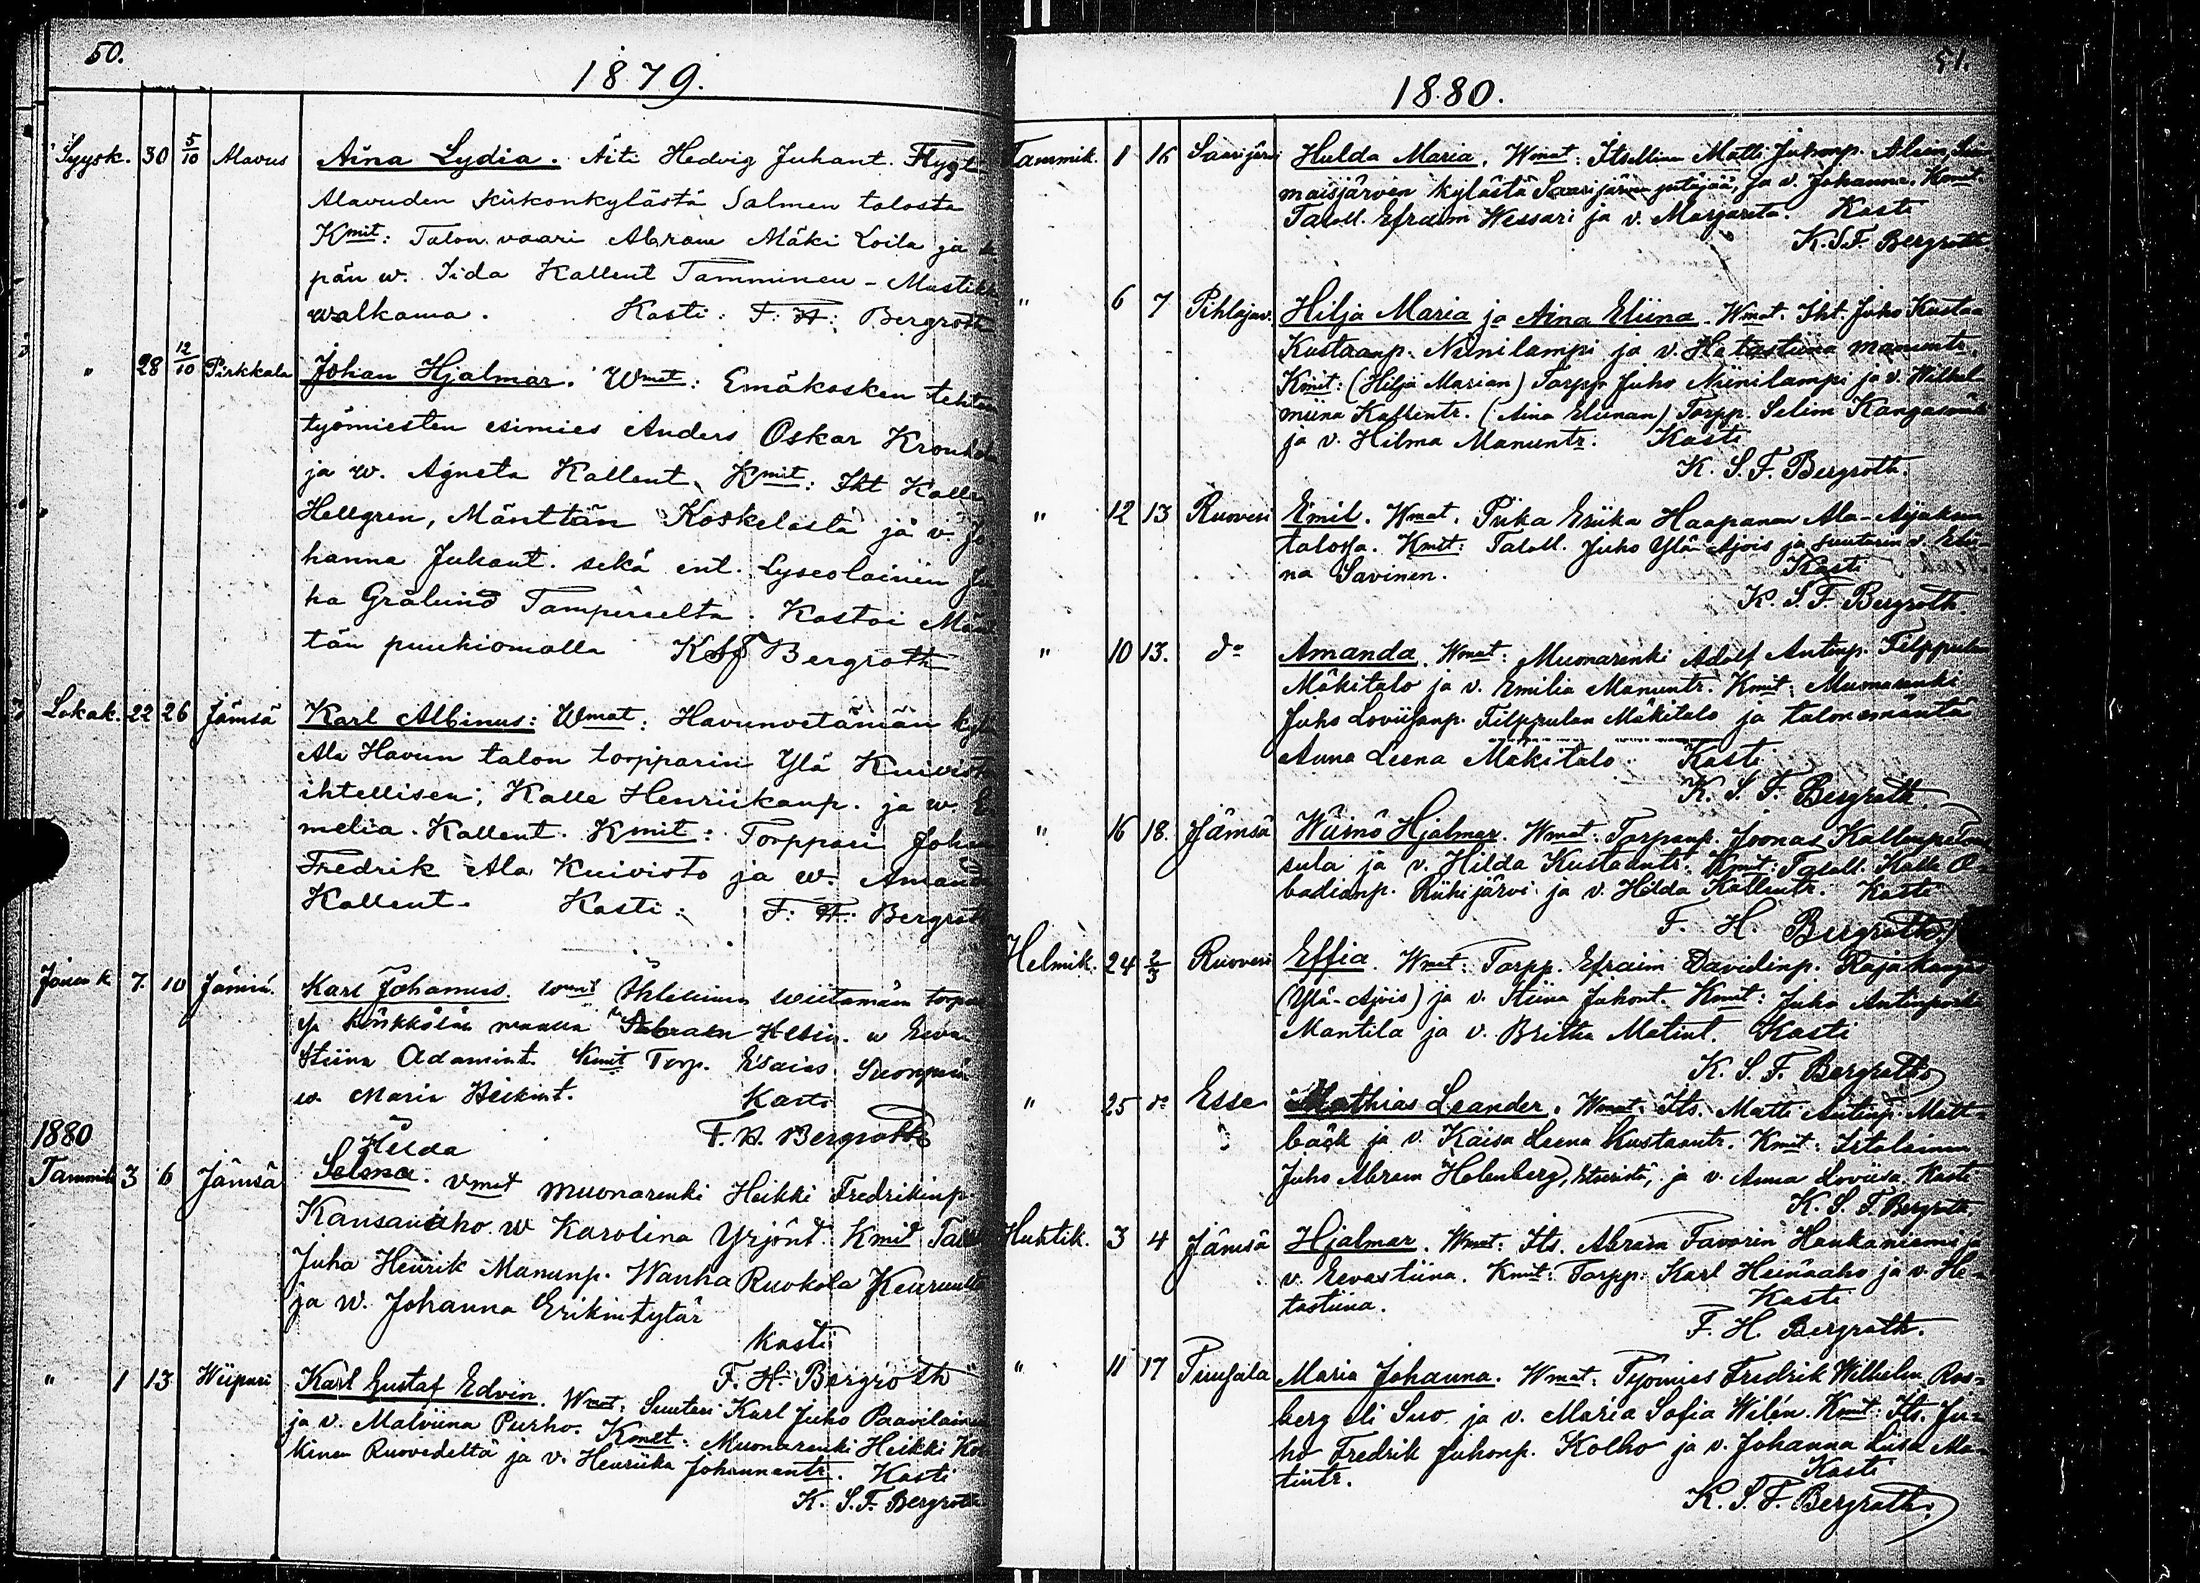 50.
1879.
Syysk. 30 5/10 Alavus Aina Lydia. Äiti Hedvig Juhant.
Alavuden kirkonkylästä Salmen talosta
Kmit: Talon vaari Abram Mäki Loila ja
pän w. Iida Kallent Tamminen -
walkama. Kasti: F. H. Bergroth
" 28 12/10 Pirkkala Johan Hjalmar. Wmat: Emäkosken
työmiesten esimies Anders Oskar
ja w. Agneta Kallent. Kmit: Iht Kalle
Hellgren, Mänttän Koskelasta ja v. Jo
hanna Juhant. sekä ent. Lyseolainen
ha Grålund Tampereelta. Kastoi Män
tän puuhiomolla KSF Bergroth
Lokak. 22 26 Jämsä Karl Albinus: Wmat: Havunvetämän kylä
Ala Havun talon torpparin Ylä Kuivisto
ihtellisen; Kalle Henriikanp. ja w. E
melia Kallent. Kmit: Torppari Johan
Fredrik Ala Kuivisto ja w. Amanda
Kallent. Kasti: F. H. Bergroth
7. 10 Jämsä. Karl Johannes. Wmat torpan
maalla w Eeva
Stiina Adamint. Kmit Torp. Esaias
w. Maria Heikint. Kasti
F. H. Bergroth
1880 Hilda
Tammik 3 6 Jämsä Selma. Vmat muonarenki Heikki Fredrikinp
Kansanaho w Karolina Yrjönt. Kmit
Juha Henrik Manunp. Wanha Ruokola Keuruulta
ja w. Johanna Erikintytär
Kasti
F. H. Bergroth
" 1 13 Wiipuri Karl Gustaf Edvin. Wmat: Suutari Karl Juho Paavilainen
ja v. Malviina Purho. Kmit: Muonarenki Heikki
kinen Ruovedeltä ja v. Henriika Johannantr. Kasti
K. S. F. Bergroth
51.
1880.
Tammik. 1 16 Saarijärvi Hulda Maria. Wmat: Itsellinen Matti Juhonp.
maisjärven kylästä Saarijärven pitäjää, ja v. Johanna. Kmit:
Taloll. Efraim Wessari ja v. Margareta. Kasti
K. S. F. Bergroth.
" 6 7 Pihlajav. Hilja Maria ja Aina Eliina. Wmat. Iht. Juho Kustaa
Kustaanp. Niinilampi ja v. Hetastiina Manuntr.
Kmit: (Hilja Marian) Torpp. Juho Niinilampi ja v. Wilhel
miina Kallentr. (Aina Eliinan) Torpp. Selim Kangasmäki
ja v. Hilma Manuntr. Kasti
K. S. F. Bergroth.
" 12 13 Ruovesi Emil. Wmat. Piika Eriika Haapanen
talossa. Kmit: Taloll. Juho Ylä-Ajois ja suutarin v. Elii-
na Savinen. Kasti
K. S. F. Bergroth.
" 10 13. do Amanda. Wmat: Muonarenki Adolf Antinp. Filppulan
Mäkitalo ja v. Emilia Manuntr. Kmit: Muonarenki
Juho Loviisanp. Filppulan Mäkitalo ja talon emäntä
Anna Leena Mäkitalo. Kasti
K. S. F. Bergroth.
" 16 18. Jämsä Wäinö Hjalmar. Wmat. Torpanp. Joonas
sula ja v. Hilda Kustaantr. Kmit: Taloll. Kalle O-
badianp. Riihijärvi ja v. Hilda Kallentr. Kasti
F. H. Bergroth.
Helmik. 24 2/3 Ruovesi Effia. Wmat: Torpp. Efraim Davidinp. Rajakangas
(Ylä-Ajois) ja v. Stiina Juhont. Kmit: Juho Antinpoika
Mantila ja v. Britha Matint. Kasti
K. S. F. Bergroth
" 25 do Esse Mathias Leander. Wmat. Its. Matti Antinp. Matt-
bäck ja v. Kaisa Leena Kustaantr. Kmit:
Juho Abram Holenberg, Etseristä, ja v. Anna Loviisa Kasti
K. S. F. Bergroth.
Huhtik. 3 4 Jämsä Hjalmar. Wmat: Its. Abram Favorin Haukaniemi ja
v. Eevastiina. Kmit: Torpp. Karl Heinäaho ja v. He-
tastiina. Kasti
F. H. Bergroth.
" 11 17 Tuusula Maria Johanna. Wmat. Työmies Fredrik Wilhelm Ros-
berg eli Suo ja v. Maria Sofia Wilén. Kmit: Its. Ju-
ho Fredrik Juhonp. Kolho ja v. Johanna Liisa Ma-
tintr. Kasti
K. S. F. Bergroth.